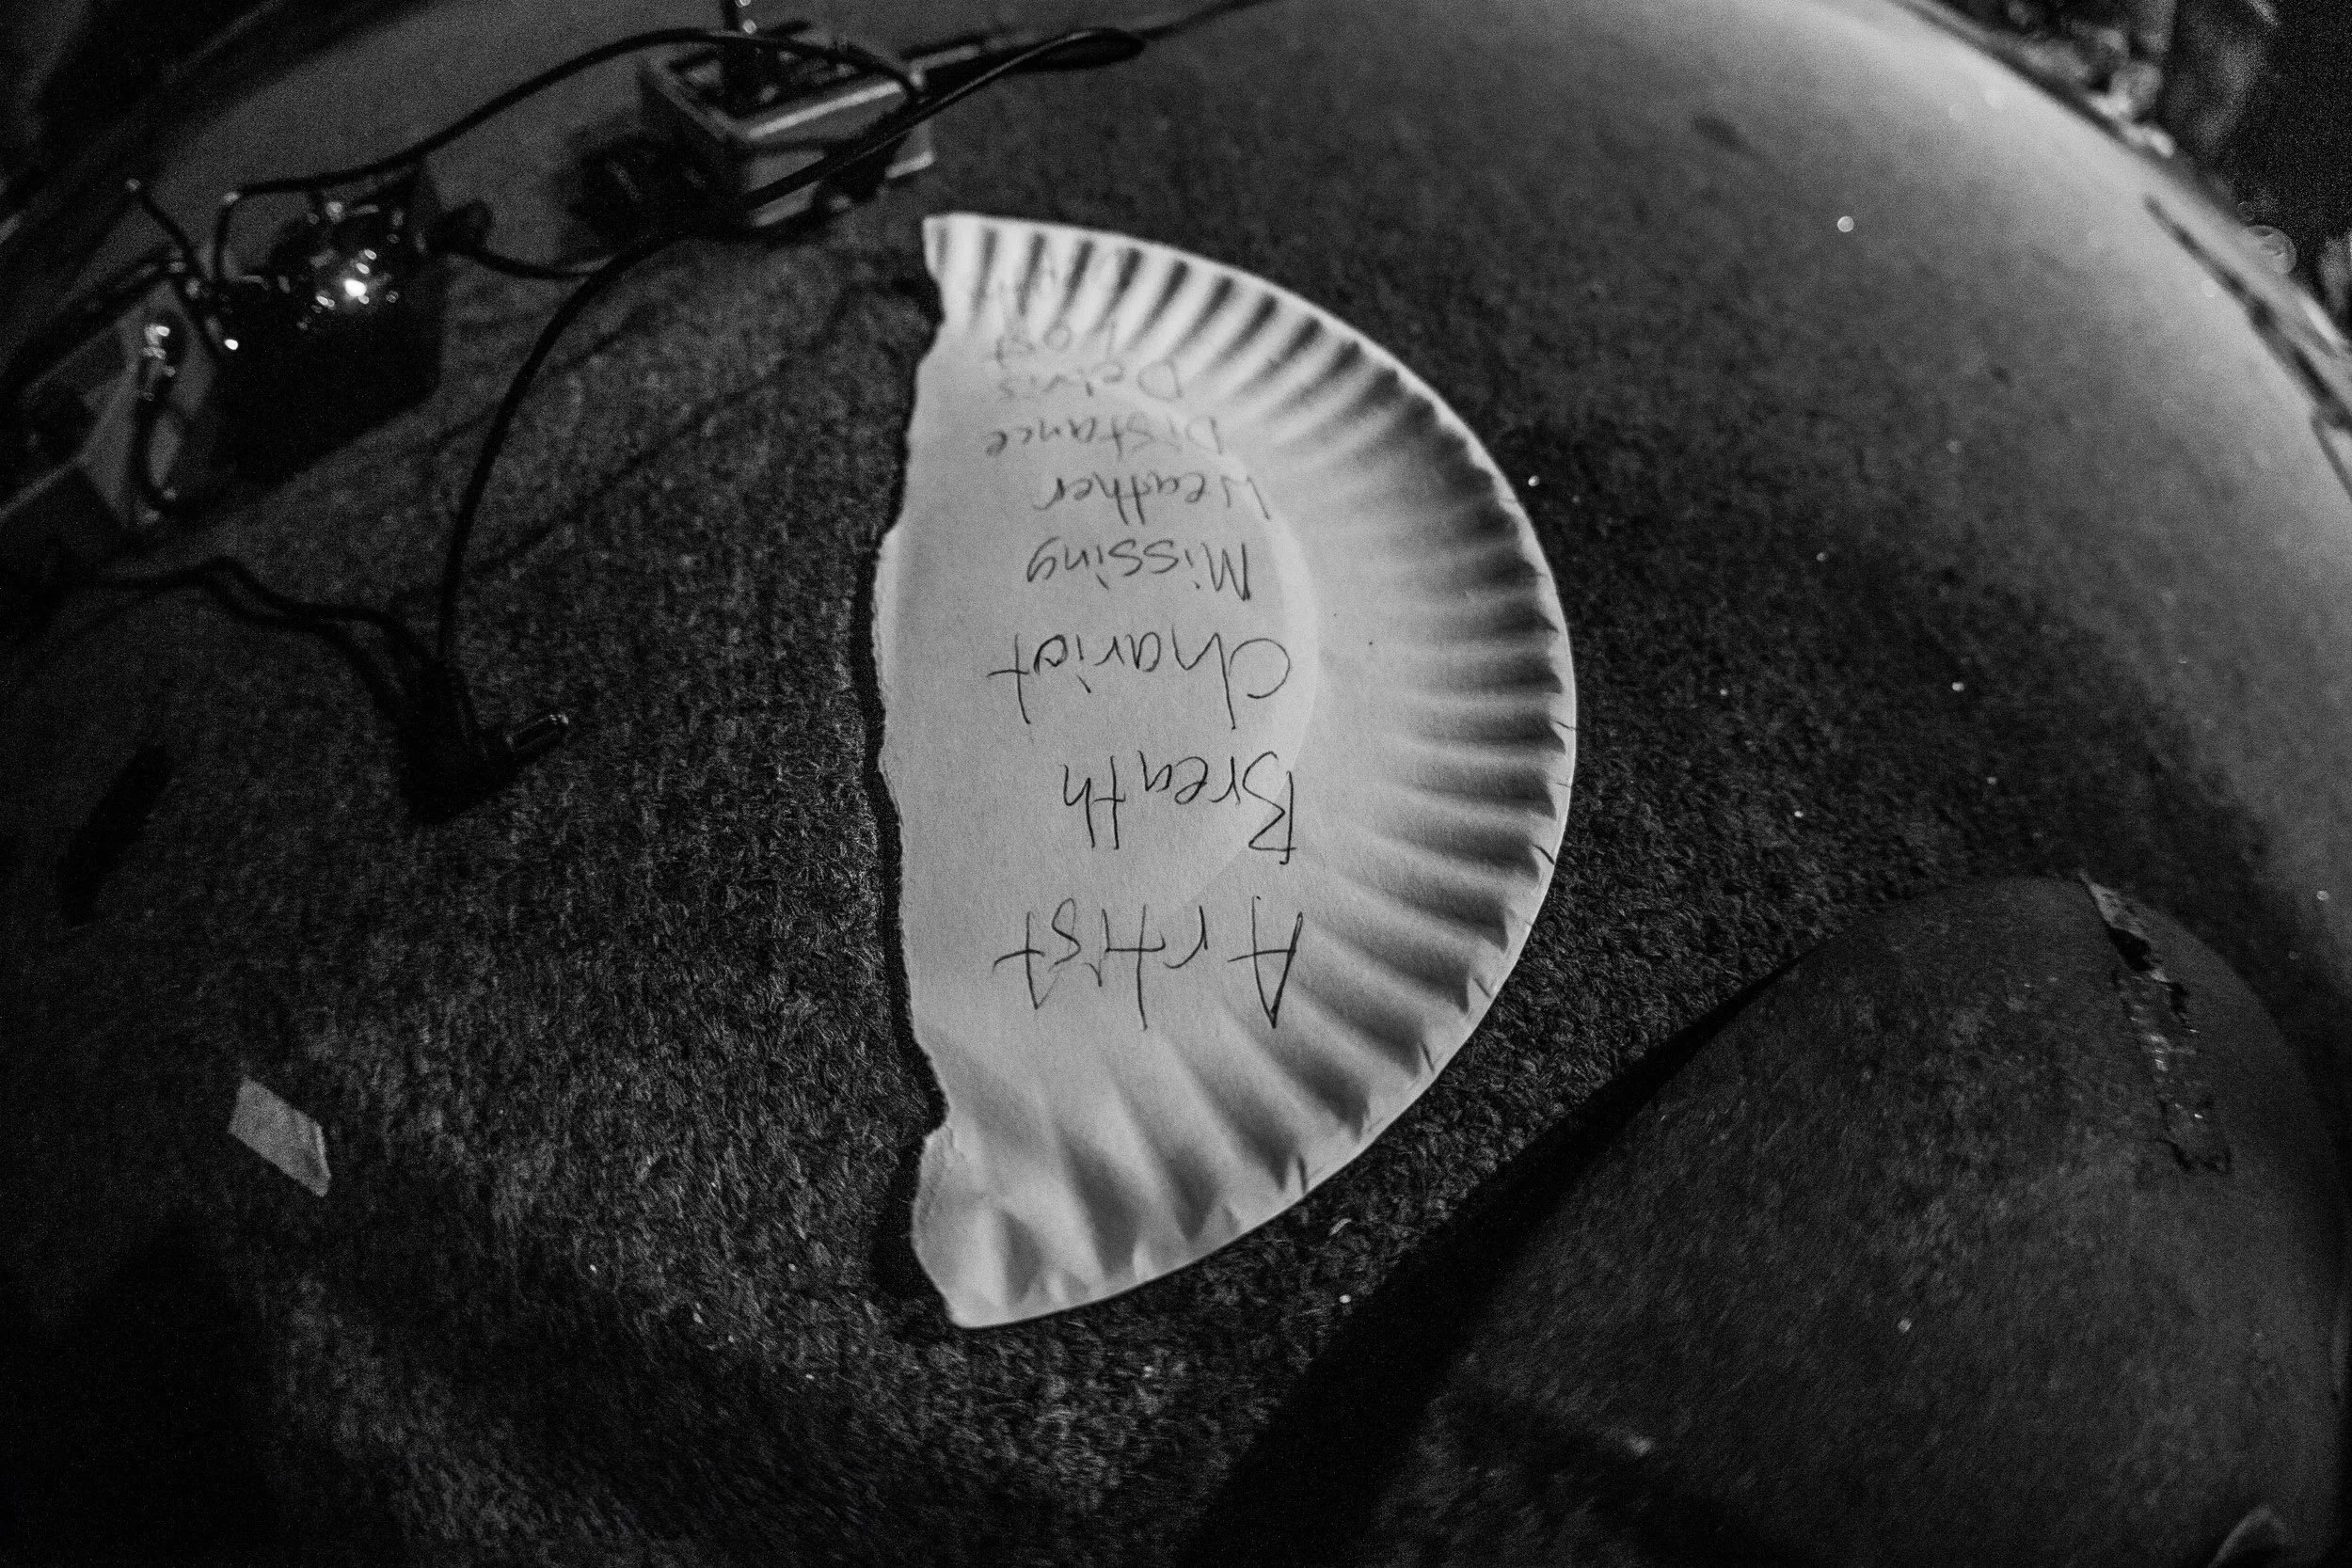 Artist
Breath
Chariot
Missing
Weather
Distance
Delvis
Lost